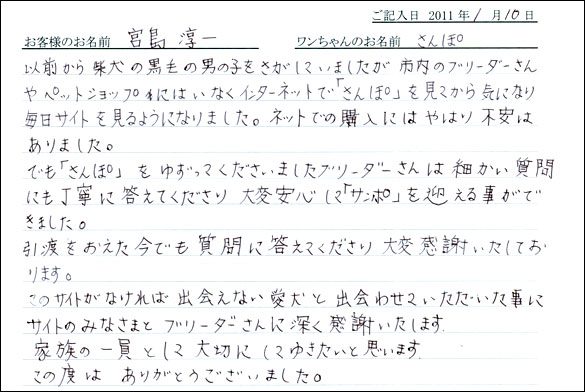 ご記入日 2011年 1月10日
お客様のお名前 宮島 淳一 ワンちゃんのお名前 さんぽ
以前から柴犬の黒毛の男の子をさがしていましたが 市内のブリーダーさん
やペットショップ等にはいなくインターネットで「さんぽ」を見てから気になり
毎日サイトを見るようになりました。ネットでの購入にはやはり 不安は
ありました。
でも「さんぽ」をゆずってくださいましたブリーダーさんは 細かい質問
にも丁寧に答えてくださり 大変安心して「サンポ」を迎える事がで
きました。
引渡をおえた今でも質問に答えてくださり 大変感謝いたしてお
ります。
このサイトがなければ出会えない愛犬と出会わせていただいた事に
サイトのみなさまとブリーダーさんに深く感謝いたします
家族の一員として大切にしてゆきたいと思います
この度は ありがとうございました。